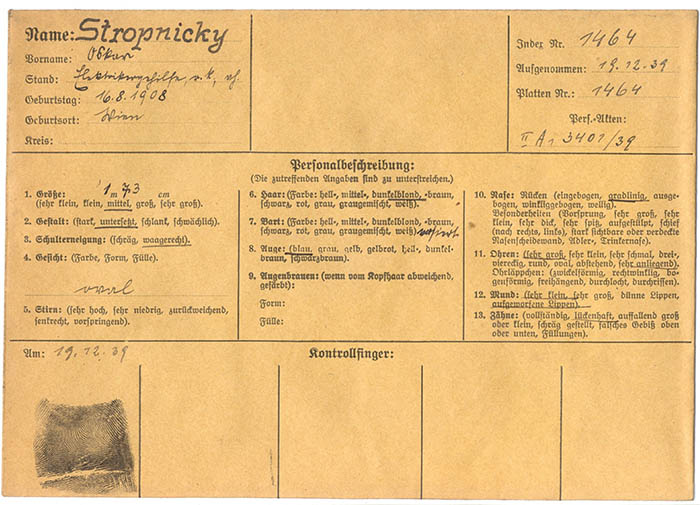 Name: Stropnicky
Vorname: Oskar
Stand: Elektrikergehilfe, r. k., vh.
Geburtstag: 16.8.1908
Geburtsort: Wien
Kreis:
Index Nr. 1464
Aufgenommen: 19.12.39
Platten Nr.: 1464
Pers.-Akten:
II A 3401/39
Personalbeschreibung:
(Die zutreffenden Angaben sind zu unterstreichen.)
1. Größe: 1 m 73 cm
(sehr klein, klein, mittel, groß, sehr groß).
2. Gestalt: (stark, untersetzt, schlank, schwächlich).
3. Schulterneigung: (schräg, waagerecht).
4. Gesicht: (Farbe, Form, Fülle).
oval
5. Stirn: (sehr hoch, sehr niedrig, zurückweichend,
senkrecht, vorspringend).
6. Haar: (Farbe: hell-, mittel-, dunkelblond, -braun,
schwarz, rot, grau, graugemischt, weiß).
7. Bart: (Farbe: hell-, mittel-, dunkelblond, -braun,
schwarz, rot, grau, graugemischt, weiß). rasiert
8. Auge: (blau, grau, gelb, gelbrot, hell-, dunkel-
braun, schwarzbraun).
9. Augenbrauen: (wenn vom Kopfhaar abweichend,
gefärbt):
Form:
Fülle:
10. Nase: Rücken (eingebogen, gradlinig, ausge-
bogen, winkliggebogen, wellig).
Besonderheiten (Vorsprung, sehr groß, sehr
klein, sehr dick, sehr spitz, aufgestülpt, schief
(nach rechts, links), stark sichtbare oder verdeckte
Nasenscheidewand, Adler-, Trinkernase).
11. Ohren: (sehr groß, sehr klein, sehr schmal, drei-
viereckig, rund, oval, abstehend, sehr anliegend).
Ohrläppchen: (zwickelförmig, rechtwinklig, bo-
genförmig, freihängend, durchlocht, durchrissen).
12. Mund: (sehr klein, sehr groß, dünne Lippen,
aufgeworfene Lippen).
13. Zähne: (vollständig, lückenhaft, auffallend groß
oder klein, schräg gestellt, falsches Gebiß oben
oder unten, Füllungen).
Am: 19.12.39
Kontrollfinger: